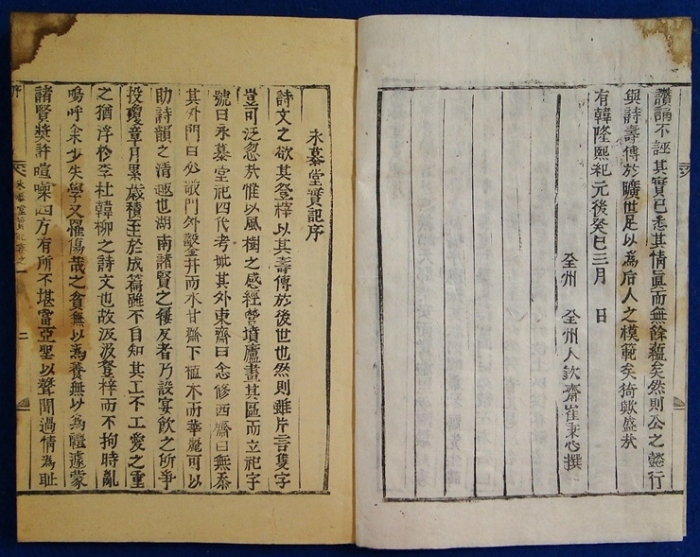 讚誦不誣其實已悉其情眞而無餘蘊矣然則公之懿行
與詩壽傳於曠世足以爲后人之模範矣猗歟盛哉
有韓隆熙紀元後癸巳三月 日
全州 全州人欽齋崔秉心撰
永慕堂實記序
詩文之欲其登梓以其壽傳於後世也然則雖片言隻字
豈可泛忽哉惟以風樹之感經營墳廬畫其區而立祀字
號曰永慕堂祀四代考妣其外東齋曰念修西齋曰無忝
其外門曰必敬門外設金井而水甘齋下植木而華麗可以
助詩韻之清趣也湖南諸賢之爲友者乃設宴飮之所爭
投瓊章月累歲積至於成篇雖不自知其工不工愛之重
之猶浮於李杜韓柳之詩文也故汲汲登梓而不拘時亂
嗚呼余少失學又罹傷哉之貧無以爲養無以爲禮遽蒙
諸賢奬許喧嘩四方有所不堪當亞聖以聲聞過情爲恥
序
永慕堂實記
二